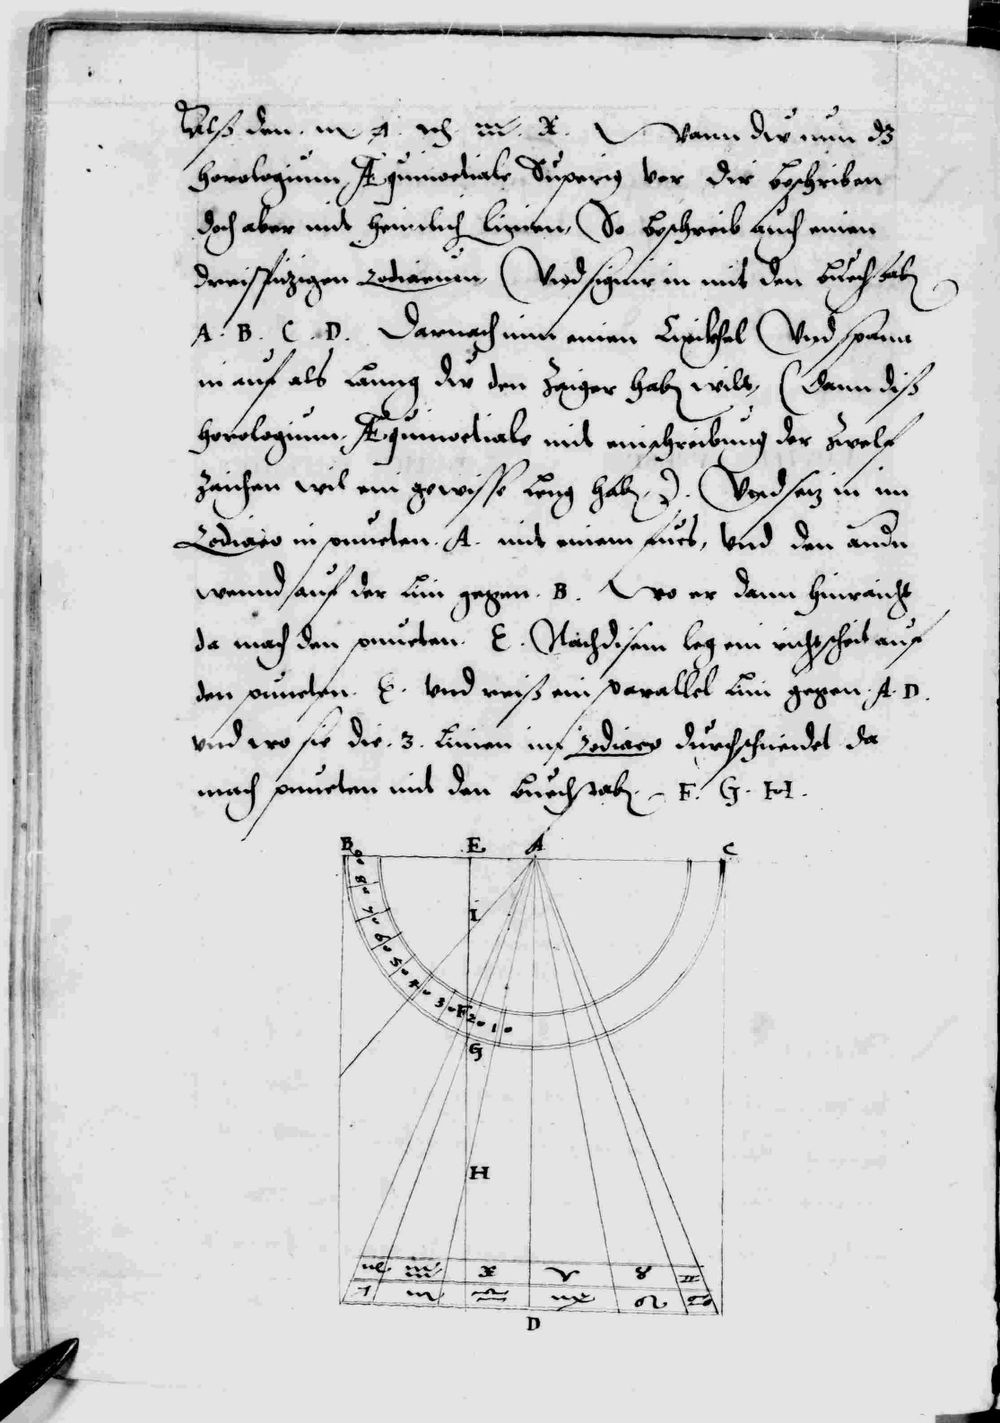 Alß den. ♏. ♐. ♑. ♒. ♓. Wann du nun dz
horologium Æquinoctiale Superiꝰ vor dir beschriben
doch aber mit heimlich linien, So beschreib auch einen
dreispizigen Zodiacum, Vnd signir in mit den buechstabn
A. B. C. D. Darnach nim einen Cirkhel Vnd spann
in auf als lanng du den Zaiger habn wilt, (dann diß
horologium Æquinoctiale mit einschreibung der Zwelf
Zaichen wil ein gewisse leng habn). Vnd sez in im
Zodiaco in puncten. A. mit einem fues, vnd den andn
wennd auf der lini gegen. B. Wo er dann hinraicht
da mach den puncten. E. Nach disem leg ein richtscheit auf
den puncten. E. vnd reiß ein parallel lini gegen. A. D.
vnd wo sie die. 3. linien im Zodiaco durchschneidet da
mach puncten mit den buechstabn. F. G. H.
B E A C
8
7 I
6
5
4
3 F 2 1
G
H
♑ ♒ ♓ ♈ ♉ ♊
♐ ♏ ♎ ♍ ♌ ♋
D